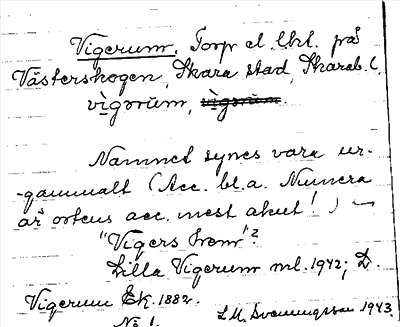 Vigerum, Torp el. lht. på
Västerskogen, Skara stad, Skarab. l.
vi̱gorŭm,
Namnet synes vara ur-
-gammalt (Acc. bl.a. Numera
är ortens acc. mest akut!)
"Vigers hem"?
Lilla Vigerum ml. 1942; D.
Vigerum Ek. 1882.
No 1. L.M. Svenungsson 1943